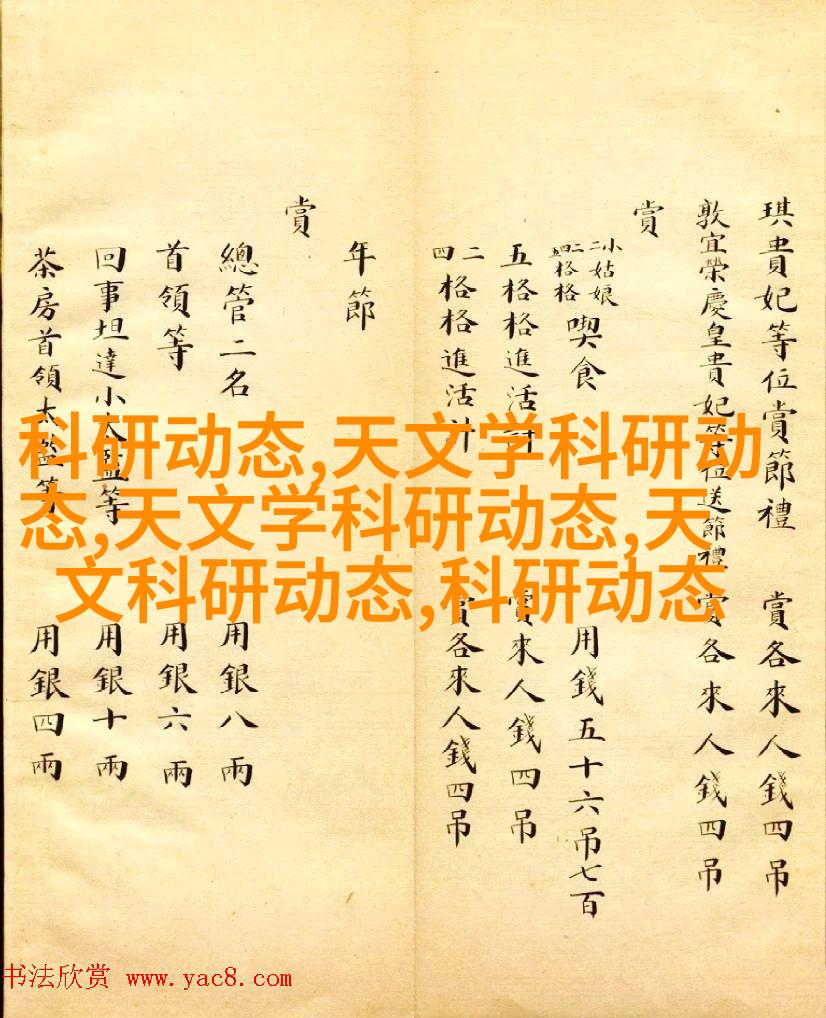 琪貴妃等位賞節禮 賞各來人錢四吊
敦宜榮慶皇貴妃等位送節禮 賞各來人錢四吊
賞
小姑娘
二二格格
五四格格
喫食 用錢五十六吊七百
五格格進活計 賞來人錢四吊
二四格格進活計 賞各來人錢四吊
年節
賞
總管二名 用銀八兩
首領等 用銀六兩
回事坦達小太監等 用銀十兩
茶房首領太監等 用銀四兩
科研动态,天文学科研动
态,天文学科研动态,天
文科研动态,科研动态
书法欣赏 www.yac8.com